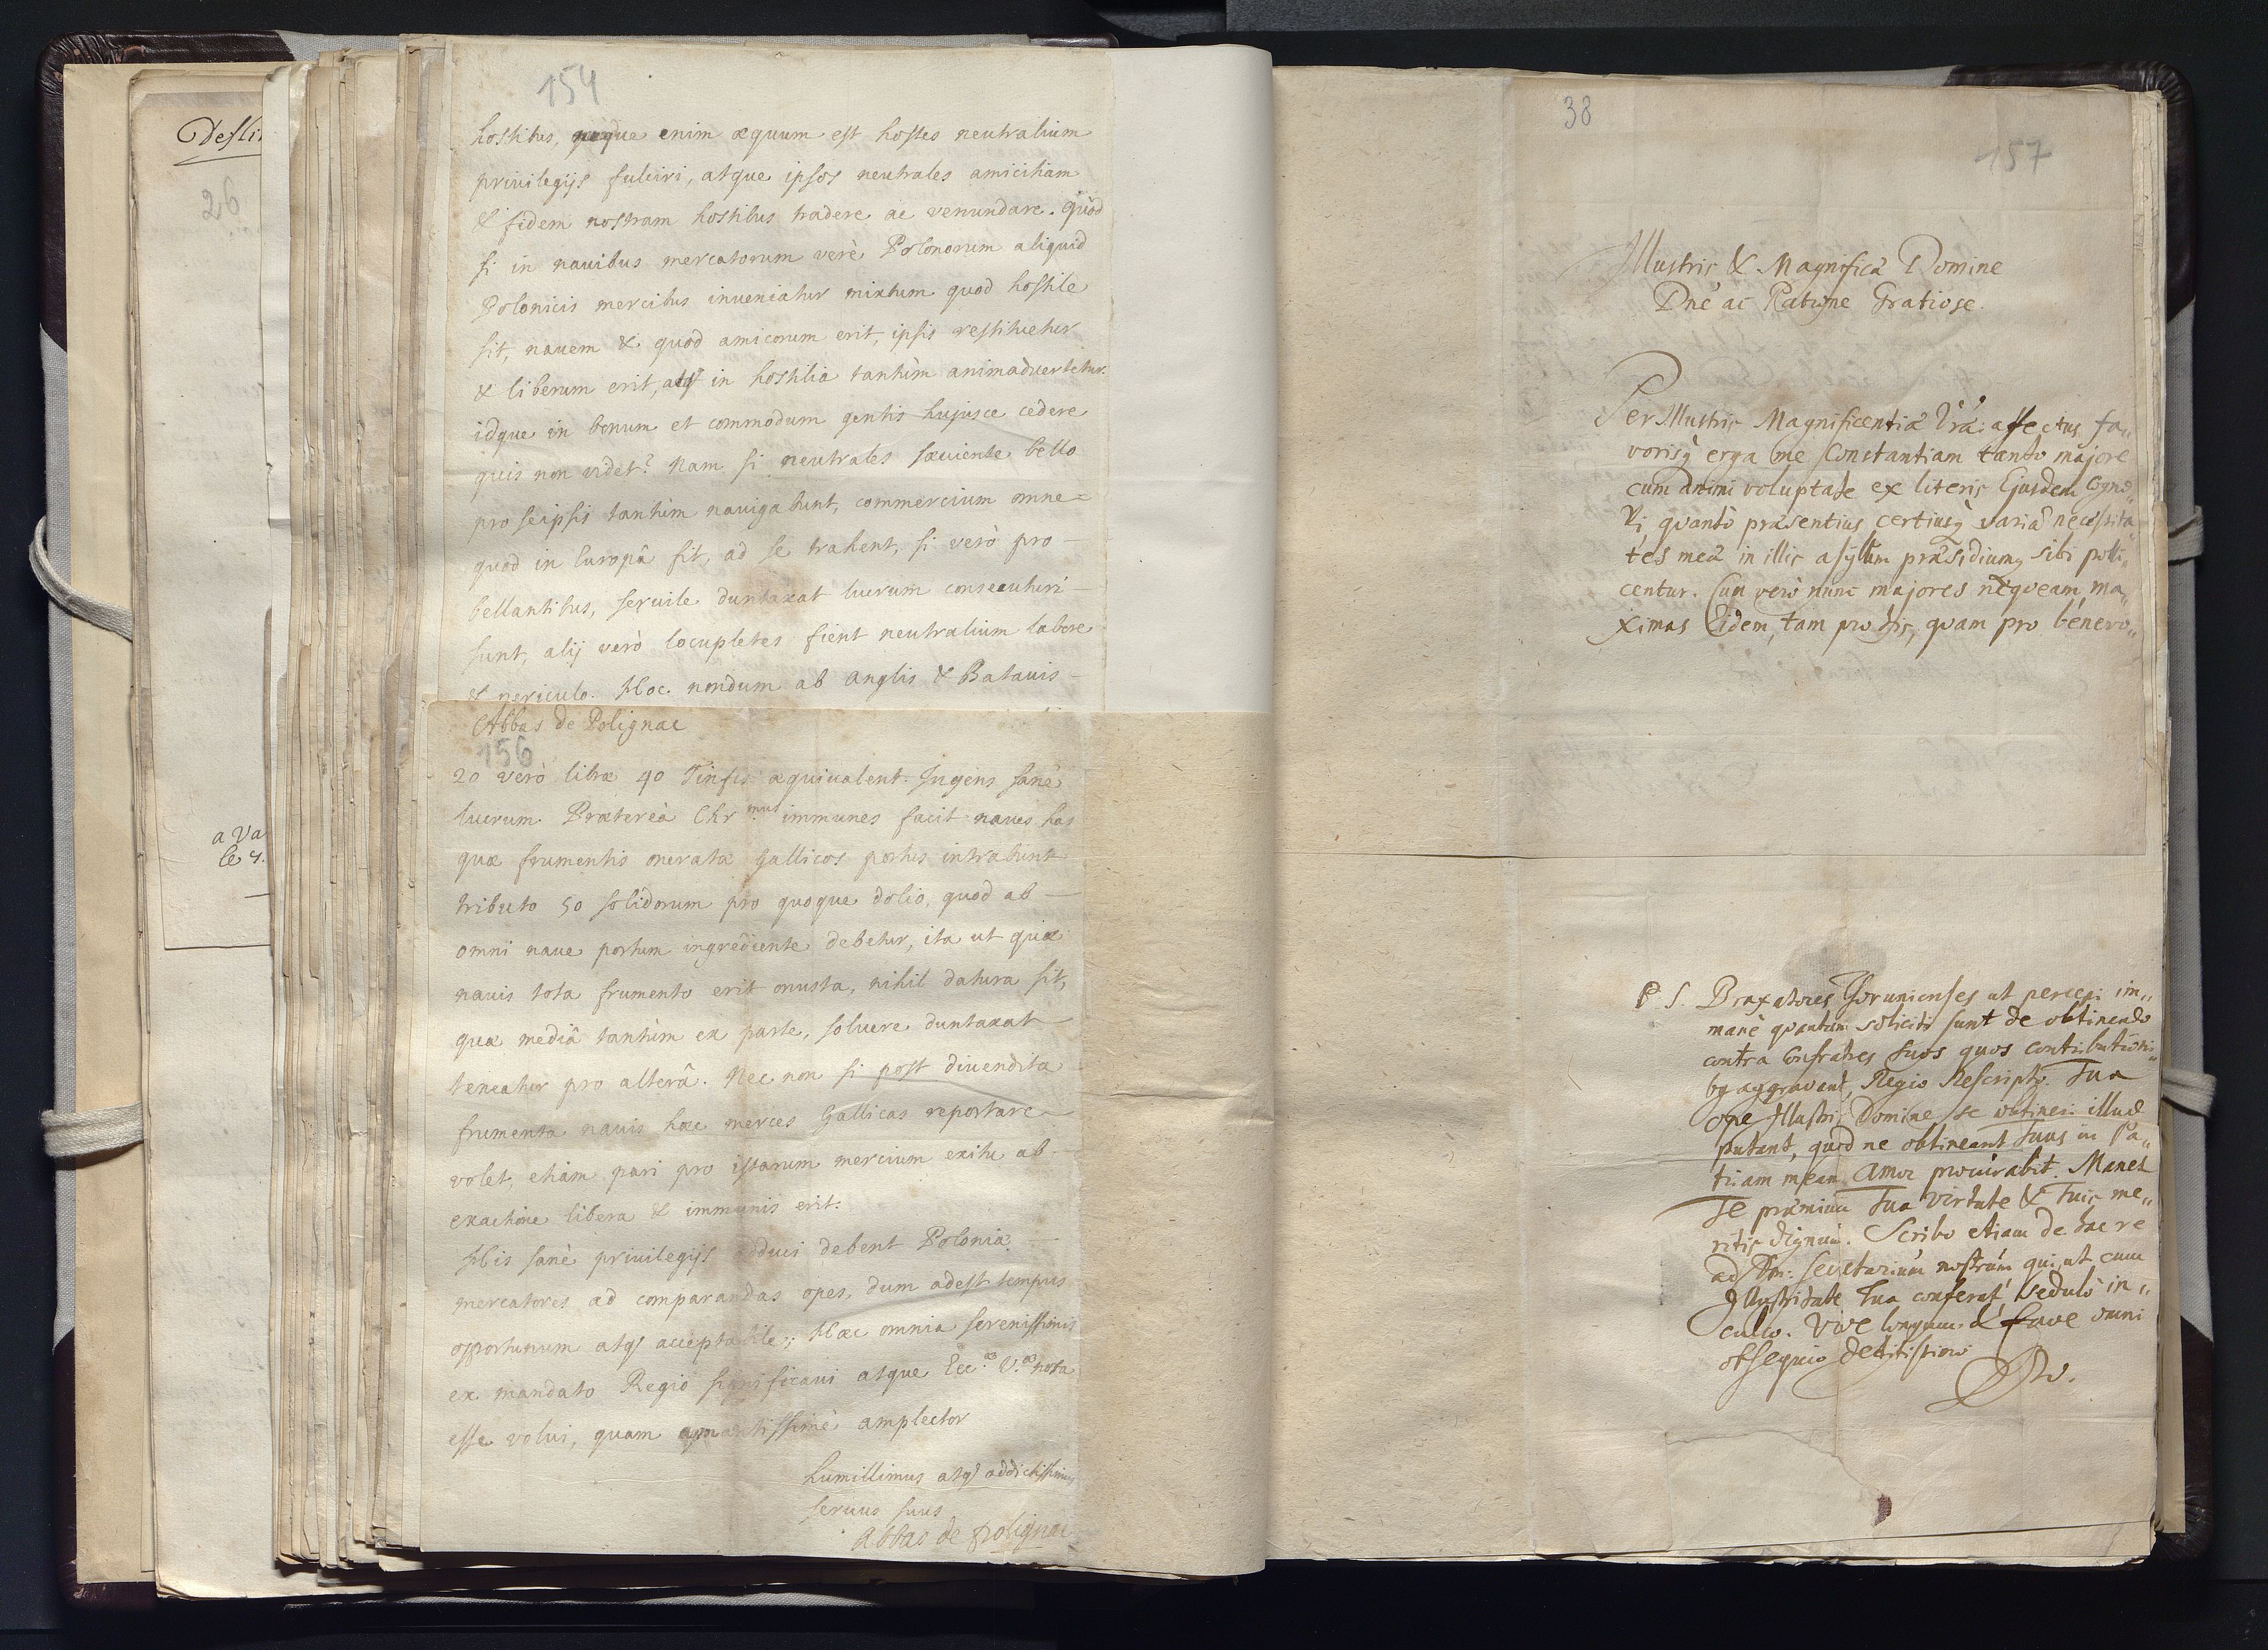 Desti
26
a Va
le 4.
154
hostibus, neque enim æquum est hostes neutralium
priuilegijs fulciri, atque ipsos neutrales amicitiam
& fidem nostram hostibus tradere ac venundare. Quòd
si in nauibus mercatorum verè Polonorum aliquid
Polonicis mercibus inueniatur mixtum quod hostile
sit, nauem & quod amicorum erit, ipsis restituetur
& liberum erit, atq in hostilia tantùm animaduertetur.
idque in bonum et commodum gentis hujusce cedere
quis non videt? Nam si neutrales sæuiente bello
pro seipsis tantùm nauigabunt, commercium omne
quod in Europâ fit, ad se trahent, si verò pro
bellantibus, seruile duntaxat lucrum consecuturi
sunt, alij verò locupletes fient neutralium labore
& periculo. Hoc nondum ab Anglis & Batauis
Abbas de Polignac
156
20 verò libræ 40 Tinfis æquiualent. Ingens sanè
lucrum. Prætereà Chr.mus immunes facit naues has
quæ frumentis oneratæ Gallicos portus intrabunt
tributo 50 solidorum pro quoque dolio, quod ab
omni naue portum ingrediente debetur, ita ut quæ
nauis tota frumento erit onusta, nihil datura sit,
quæ mediâ tantùm ex parte, soluere duntaxat
teneatur pro alterâ. Nec non si post diuendita
frumenta nauis hæc merces Gallicas reportare
volet, etiam pari pro istarum mercium exitu ab
exactione libera & immunis erit.
His sanè priuilegijs adduci debent Poloniæ
mercatores ad comparandas opes, dum adest tempus
opportunum atq acceptabile; Hæc omnia serenissimis
ex mandato Regio significaui atque Ecc.æ V.æ nota
esse volui, quam amantissimè amplector
humillimus atq addictissimus
seruus suus
Abbas de Polignac
38
157
Illustris & Magnifice Domine
Dne ac Patrone Gratiose.
Per Illustris Magnificentiæ Vræ affectus fa„
vorisq erga me Constantiam tanto majore
cum animi voluptate ex literis Ejusdem Cogno„
vi, quantò præsentius certiusq variæ necessita„
tes meæ in illis asylum præsidiumq sibi polli„
centur. Cum verò nunc majores nequeam, ma„
ximas Eidem, tam pro his, quam pro benevo„
P S. Braxatores Thorunienses ut percepi im„
manè quantum soliciti sunt de obtinendo
contra Confratres suos quos contributioni„
bq aggravant, Regio Rescripto. Tua
ope Illustris Domine se obtineri illud
putant, quod ne obtineant tuus in Pa„
triam meam Amor procurabit. Manet
Te præmium Tua virtute & Tuis me„
ritis dignum. Scribo etiam de hac re
ad Dn: Secretarium nostrum qui, ut cum
Illustritate Tua conferat sedulò in„
culco. Vive longum & fave omni
obsequio deditissimo